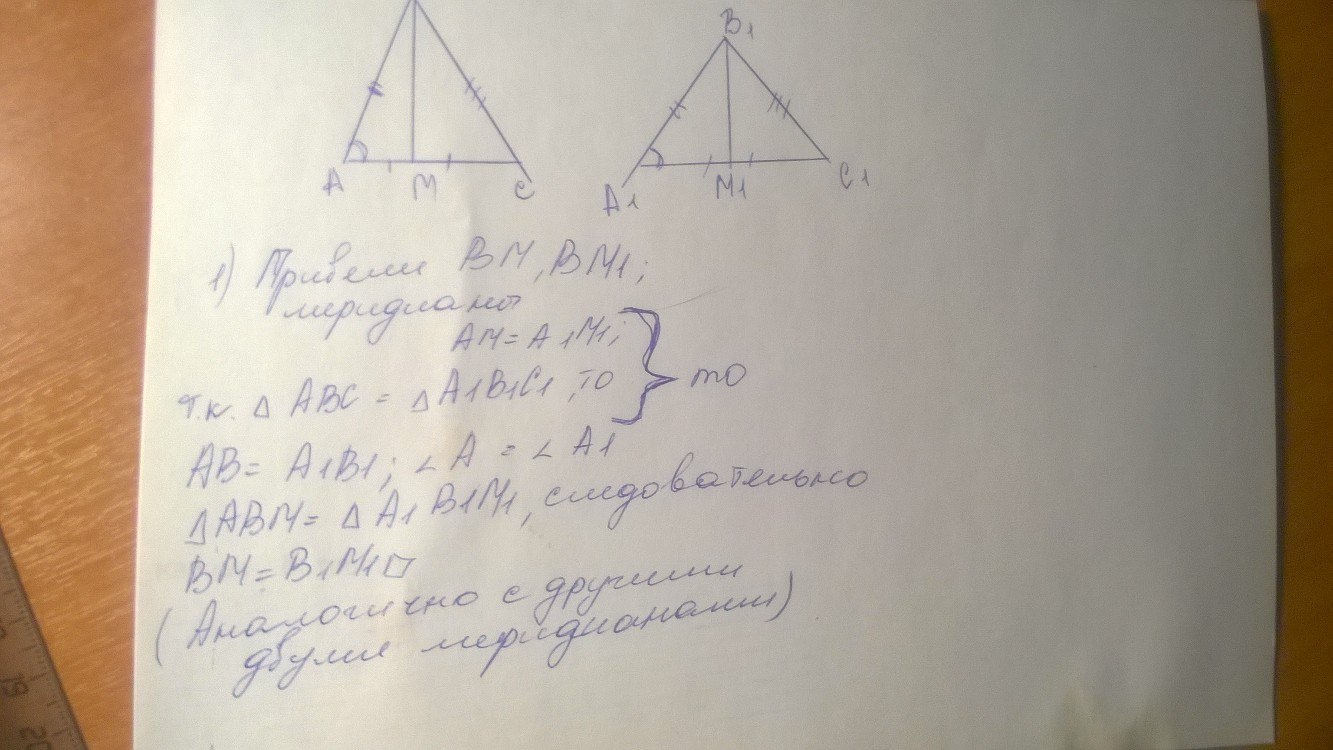 B1
A
M
C
A1
M1
C1
1) Привели BM, BM1;
меридианы
AM = A1M1;
т.к. △ ABC = △ A1B1C1, то } то
AB = A1B1; ∠A = ∠A1
△ABM = △A1B1M1, следовательно
BM = B1M1□
(Аналогично с другими
двумя меридианами)